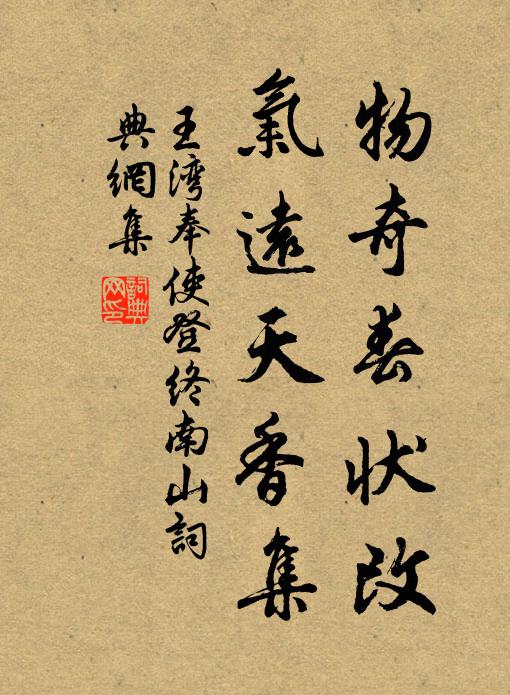 物奇春状改
氣遠天香集
王湾奉使登终南山詞
典網集
詞典
网印